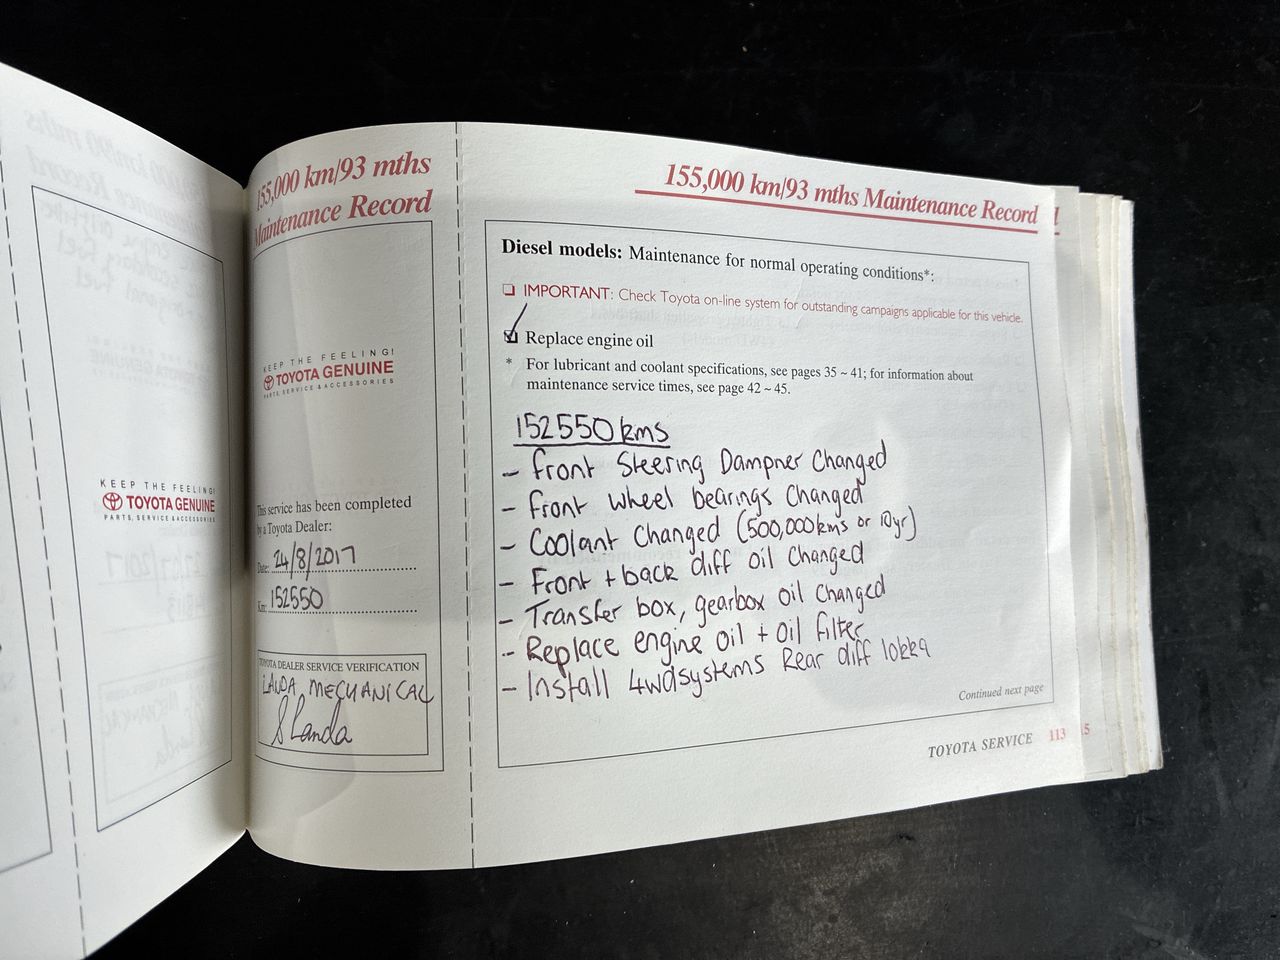 155,000 km/93 mths
Maintenance Record
KEEP THE FEELING!
TOYOTA GENUINE
PARTS, SERVICE & ACCESSORIES
KEEP THE FEELING!
TOYOTA GENUINE
PARTS, SERVICE & ACCESSORIES
This service has been completed
by a Toyota Dealer:
Date: 24/8/2017
Km: 152550
TOYOTA DEALER SERVICE VERIFICATION
LANDA MECHANICAL
S Landa
155,000 km/93 mths Maintenance Record
Diesel models: Maintenance for normal operating conditions*:
❑ IMPORTANT: Check Toyota on-line system for outstanding campaigns applicable for this vehicle.
☑ Replace engine oil
* For lubricant and coolant specifications, see pages 35 ~ 41; for information about
maintenance service times, see page 42 ~ 45.
152550 kms
- Front Steering Dampner Changed
- Front wheel bearings Changed
- Coolant Changed (500,000kms or 10yr)
- Front + back diff oil changed
- Transfer box, gearbox oil changed
- Replace engine oil + oil filter
- Install 4wdsystems Rear diff lokka
Continued next page
TOYOTA SERVICE 113
5